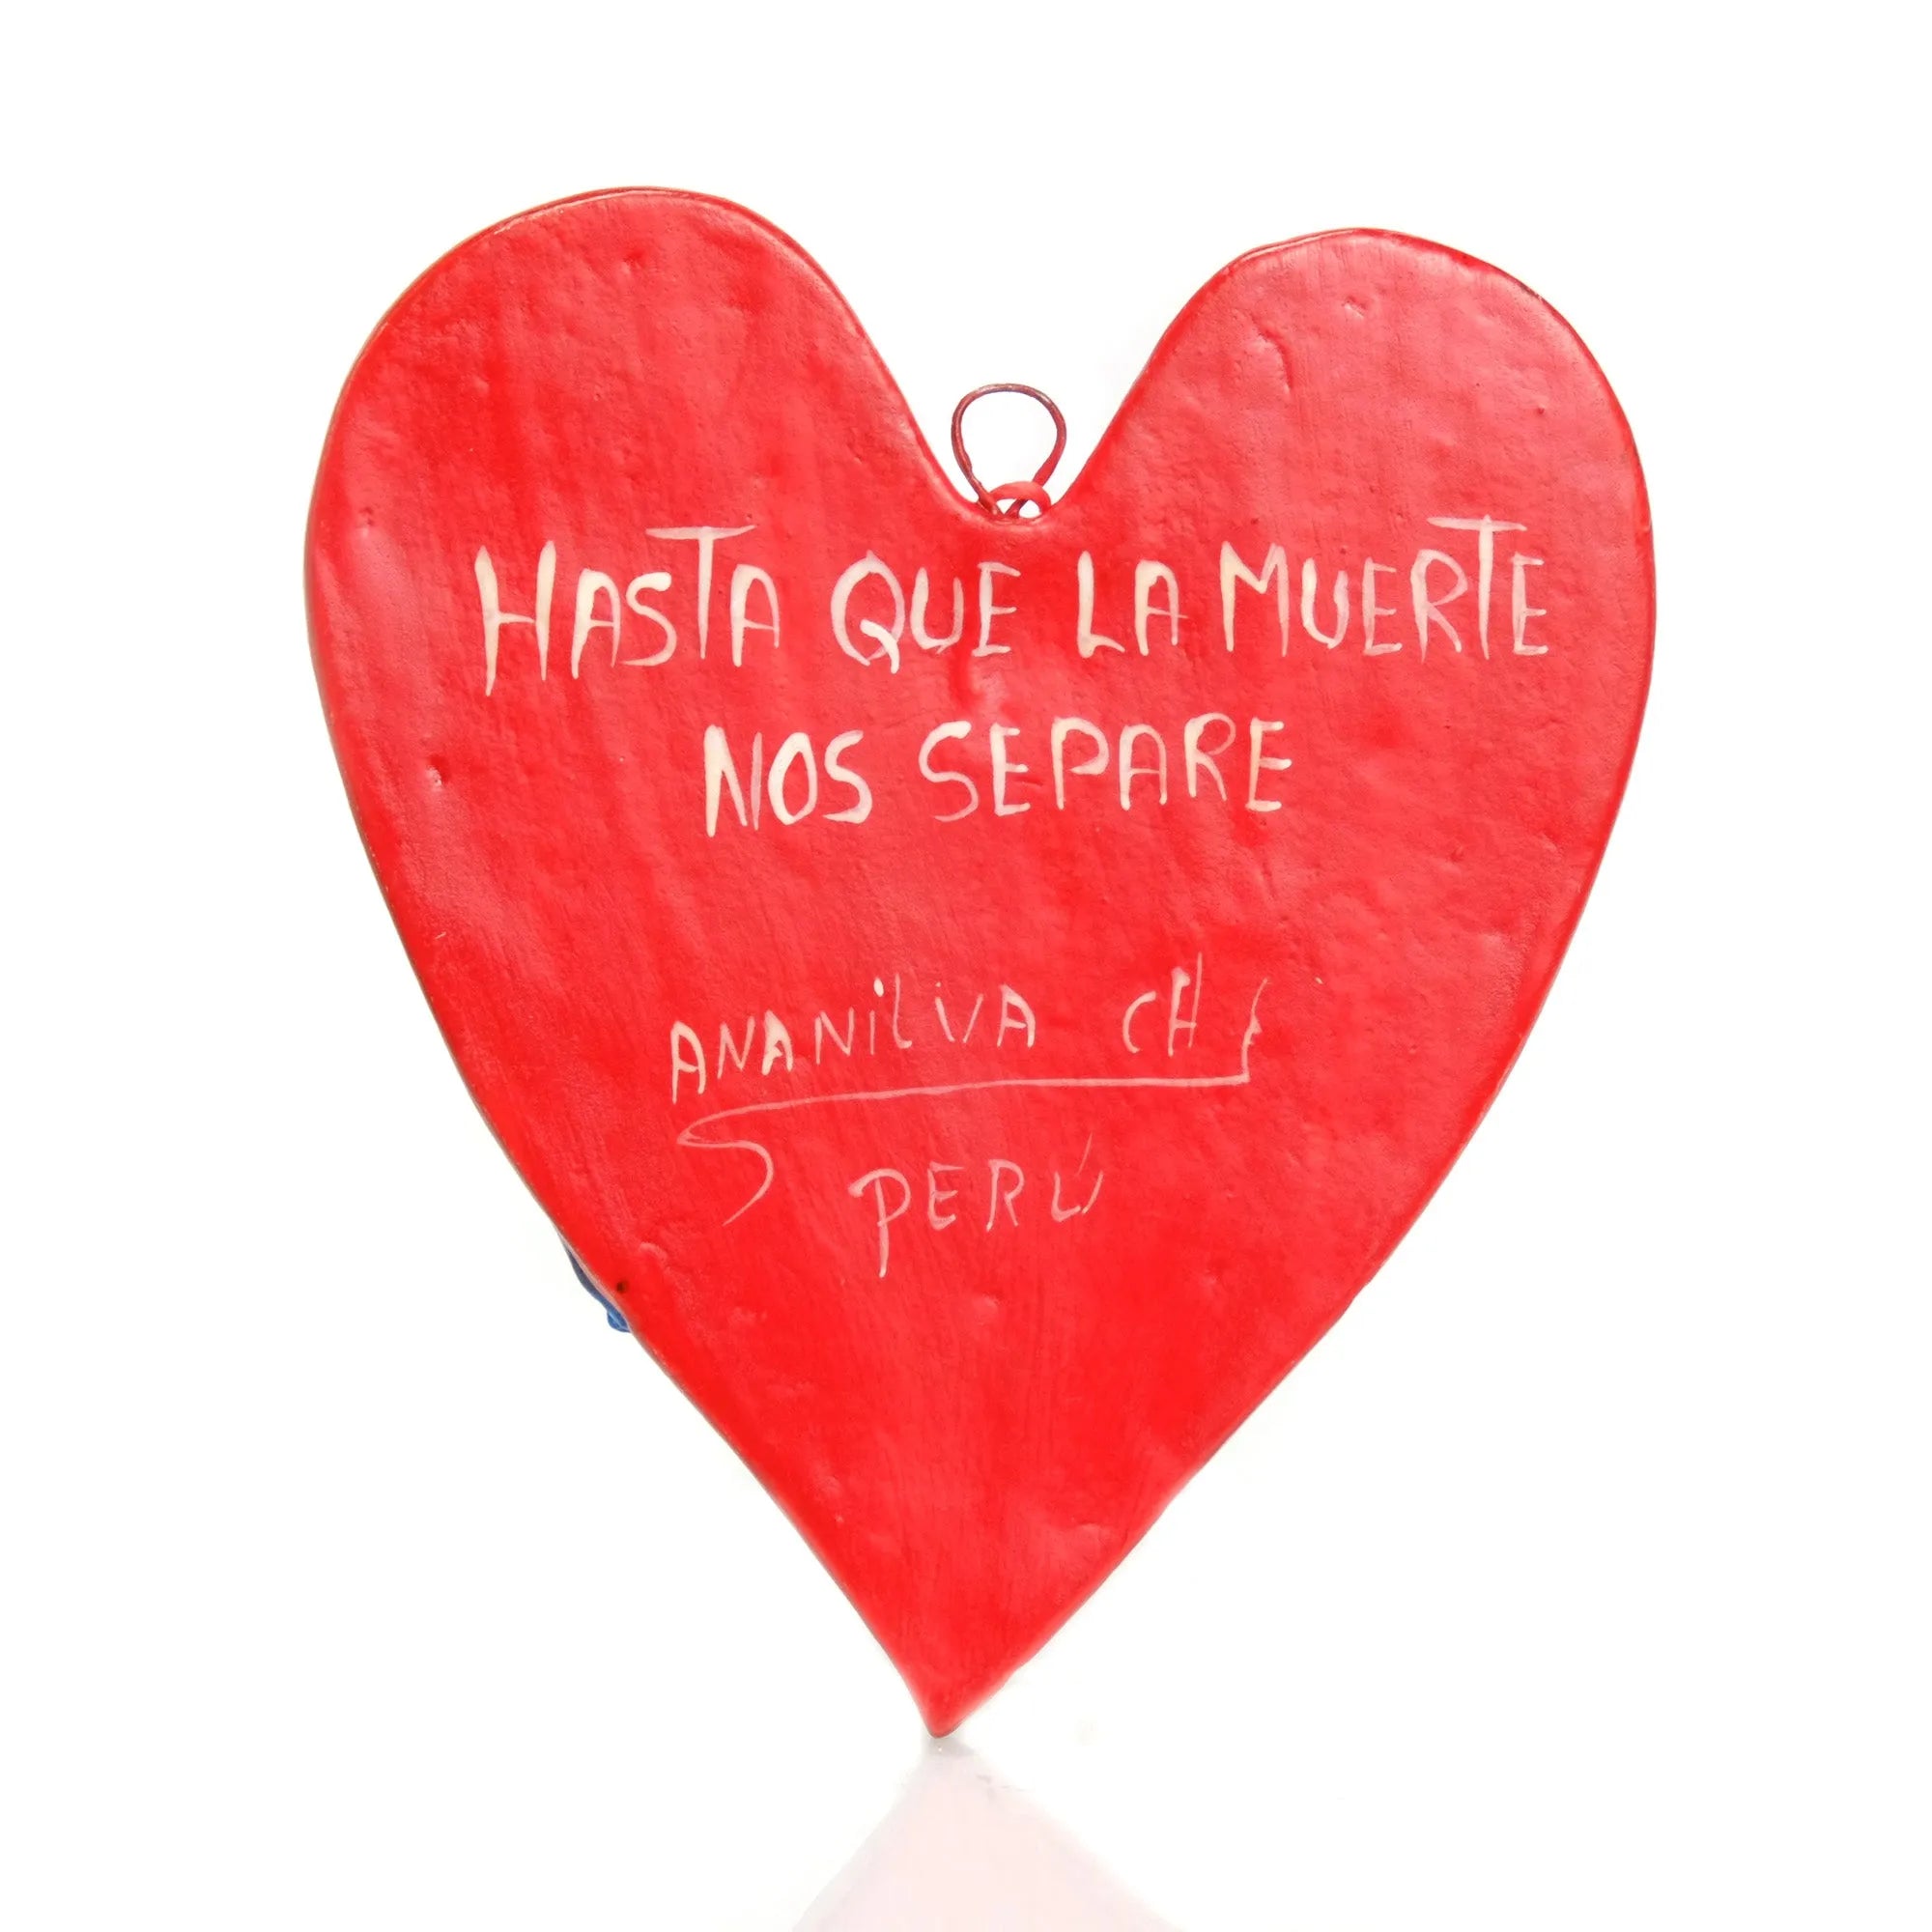 HASTA QUE LA MUERTE
NOS SEPARE
ANANILVA CH
PERÚ